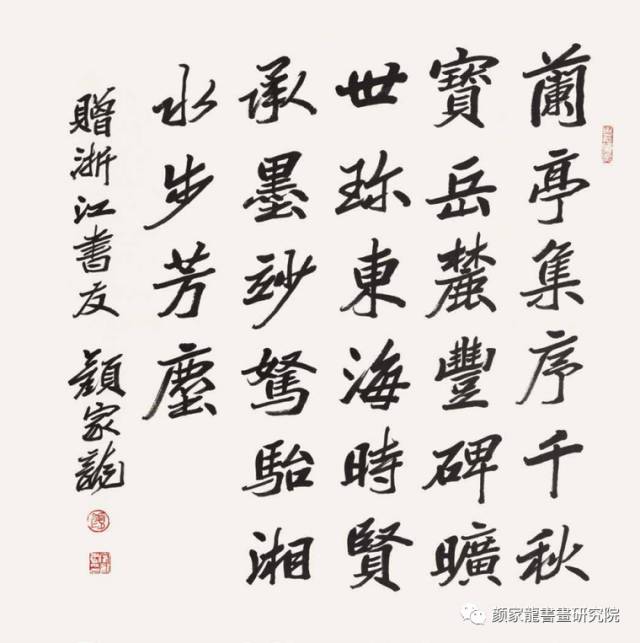 蘭亭集序千秋
寶岳麓豐碑曠
世珎東海時賢
承墨竗駑駘湘
水步芳塵
贈浙江書友 顏家龍
顏家龍書畫研究院